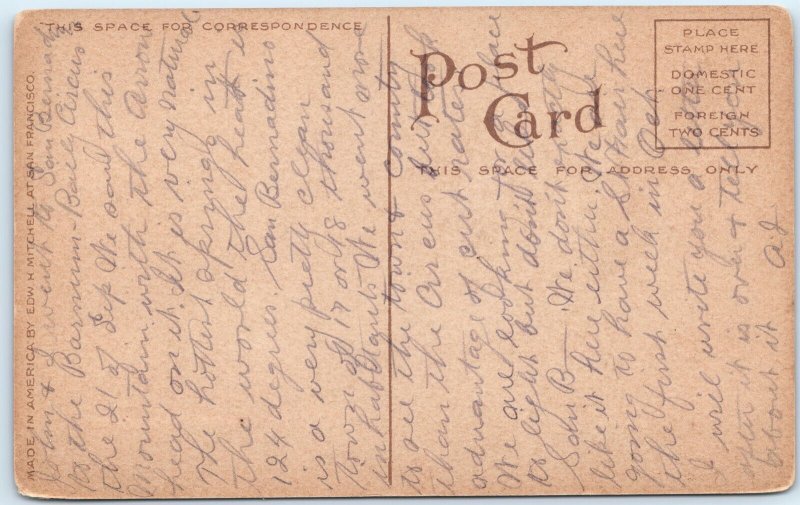 THIS SPACE FOR CORRESPONDENCE
Post Card
THIS SPACE FOR ADDRESS ONLY
PLACE
STAMP HERE
DOMESTIC
ONE CENT
FOREIGN
TWO CENTS
MADE IN AMERICA BY EDW. H. MITCHELL AT SAN FRANCISCO.
& I went to San Bernadi
to the Barnum-Baily Circus
the 21 of Sep We saw this
Mountain with the Arrow
head on it. It is very natural
The hottest springs in
the world the heat is
124 degrees. San Bernadino
is a very pretty clean
town of 17 or 18 thousand
inhabitants We went more
to see the town & country
than the Circus but took
advantage of cut rates
We are looking for a place
to light but dont like
San B— We dont
like it here either. We are
going to have a St Fair here
the first week in Oct
I will write you a letter
after it is over & tell you
about it AJ